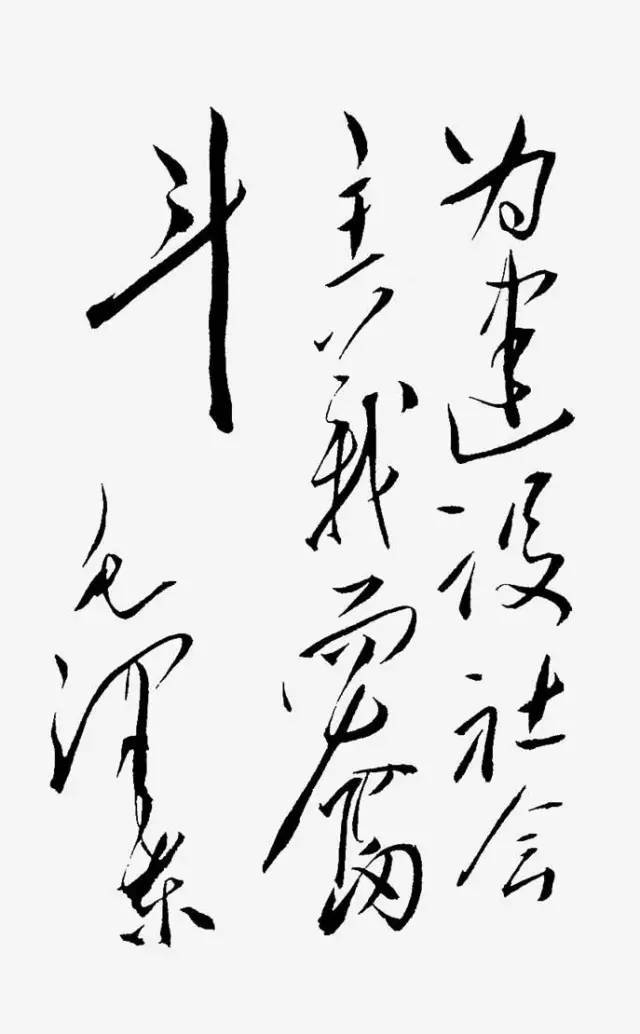 为建设社会
主义而奮
斗
毛泽东